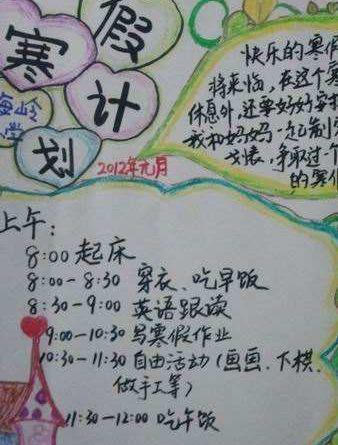 寒假
计
划
海岭
学
2012年元月
快乐的寒假
将来临，在这个寒
休息外，还要好好安排
我和妈妈一起制定
划表，争取过一个
的寒假
上午：
8:00 起床
8:00-8:30 穿衣、吃早饭
8:30-9:00 英语跟读
9:00-10:30 写寒假作业
10:30-11:30 自由活动（画画、下棋、
做手工等）
11:30-12:00 吃午饭